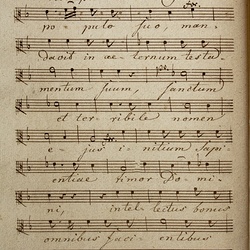 po- pulo suo, man-
davit in ae- ternum testa-
mentum suum, sanctum
et ter- ribile nomen
e- jus initium sapi-
entiae timor Domi-
ni, intel- lectus bonus
omnibus faci- entibus